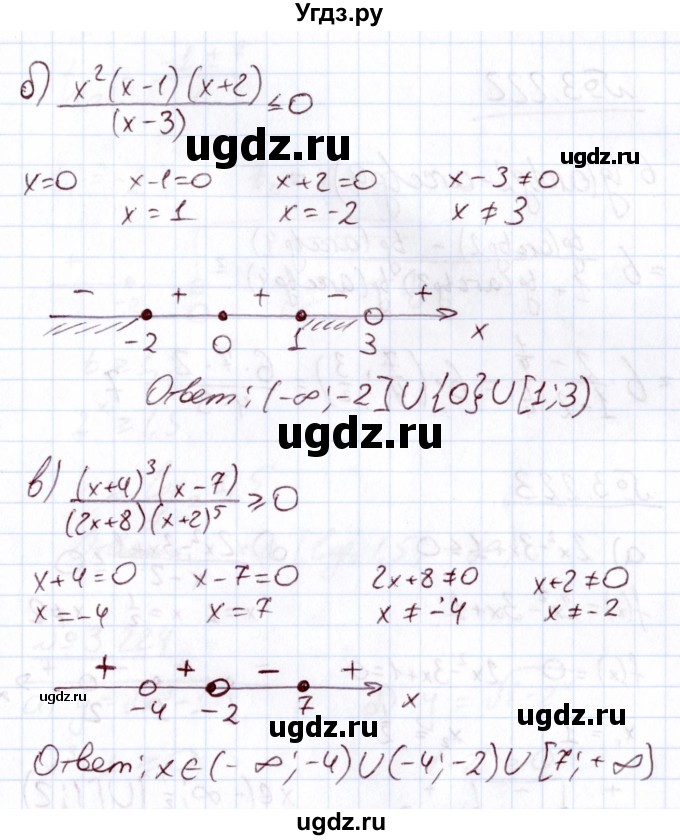 Угдз.ру
б) x²(x-1)(x+2)/(x-3) ≤ 0
ugdz.ru
ugdz.ru
x=0 x-1=0 x+2=0 x-3≠0
x=1 x=-2 x≠3
ugdz.ru
- + + - +
-2 0 1 3 x
Ответ: (-∞;-2]∪{0}∪[1;3)
ugdz.ru
в) (x+4)³(x-7)/(2x+8)(x+2)⁵ ≥ 0
ugdz.ru
x+4=0 x-7=0 2x+8≠0 x+2≠0
x=-4 x=7 x≠-4 x≠-2
ugdz.ru
+ + - +
ugdz.ru
-4 -2 7 x
ugdz.ru
Ответ: x∈(-∞;-4)∪(-4;-2)∪[7;+∞)
ugdz.ru